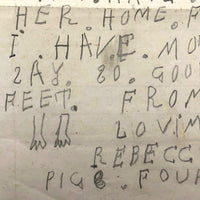 HER. HOME. F
I. HAVE. MO
2AY. 80. GOO
FEET. FROM
LOVIN
REBECC
PIGE. FOUR